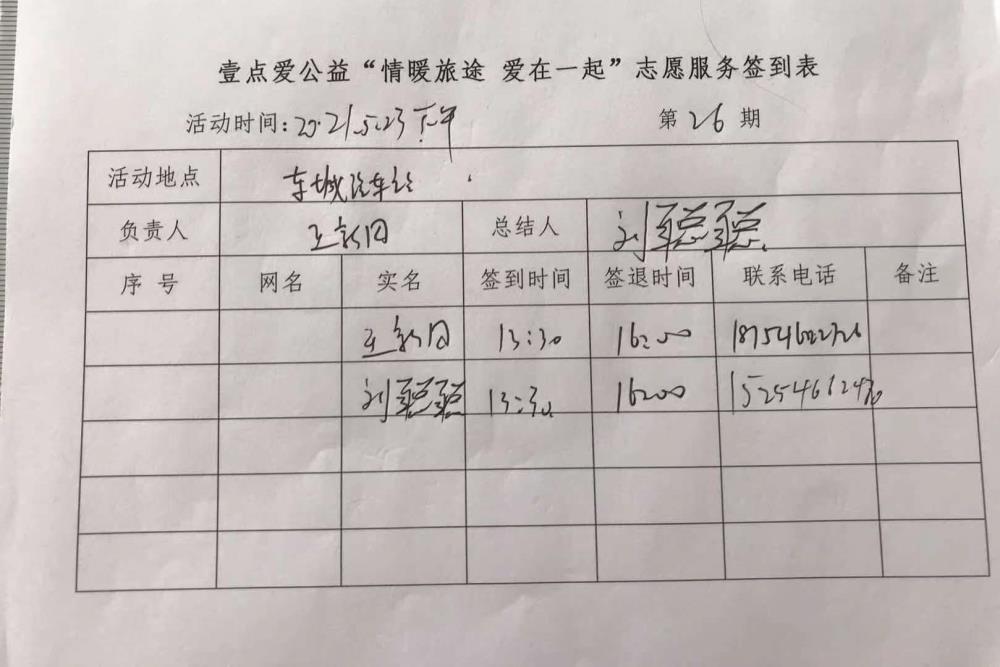 壹点爱公益“情暖旅途 爱在一起”志愿服务签到表
活动时间:2021.5.23下午 第26期
活动地点 东城汽车站
负责人 王新同 总结人 刘聪聪
序号 网名 实名 签到时间 签退时间 联系电话 备注
王新同 13:30 16:00
刘聪聪 13:30 16:00